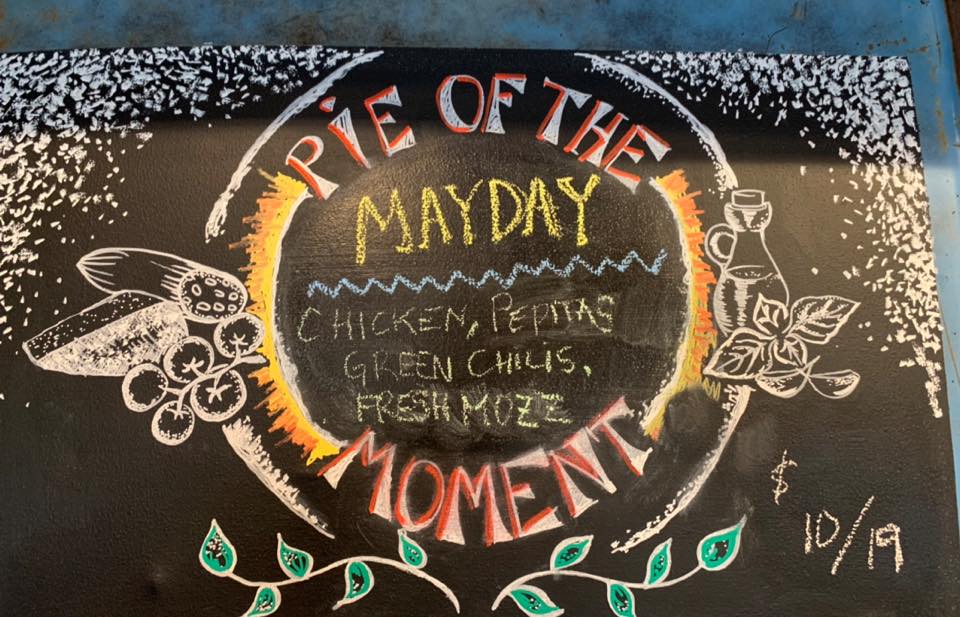 PIE OF THE
MAYDAY
CHICKEN, PEPITAS
GREEN CHILIS,
FRESH MOZZ
MOMENT
$
10/19